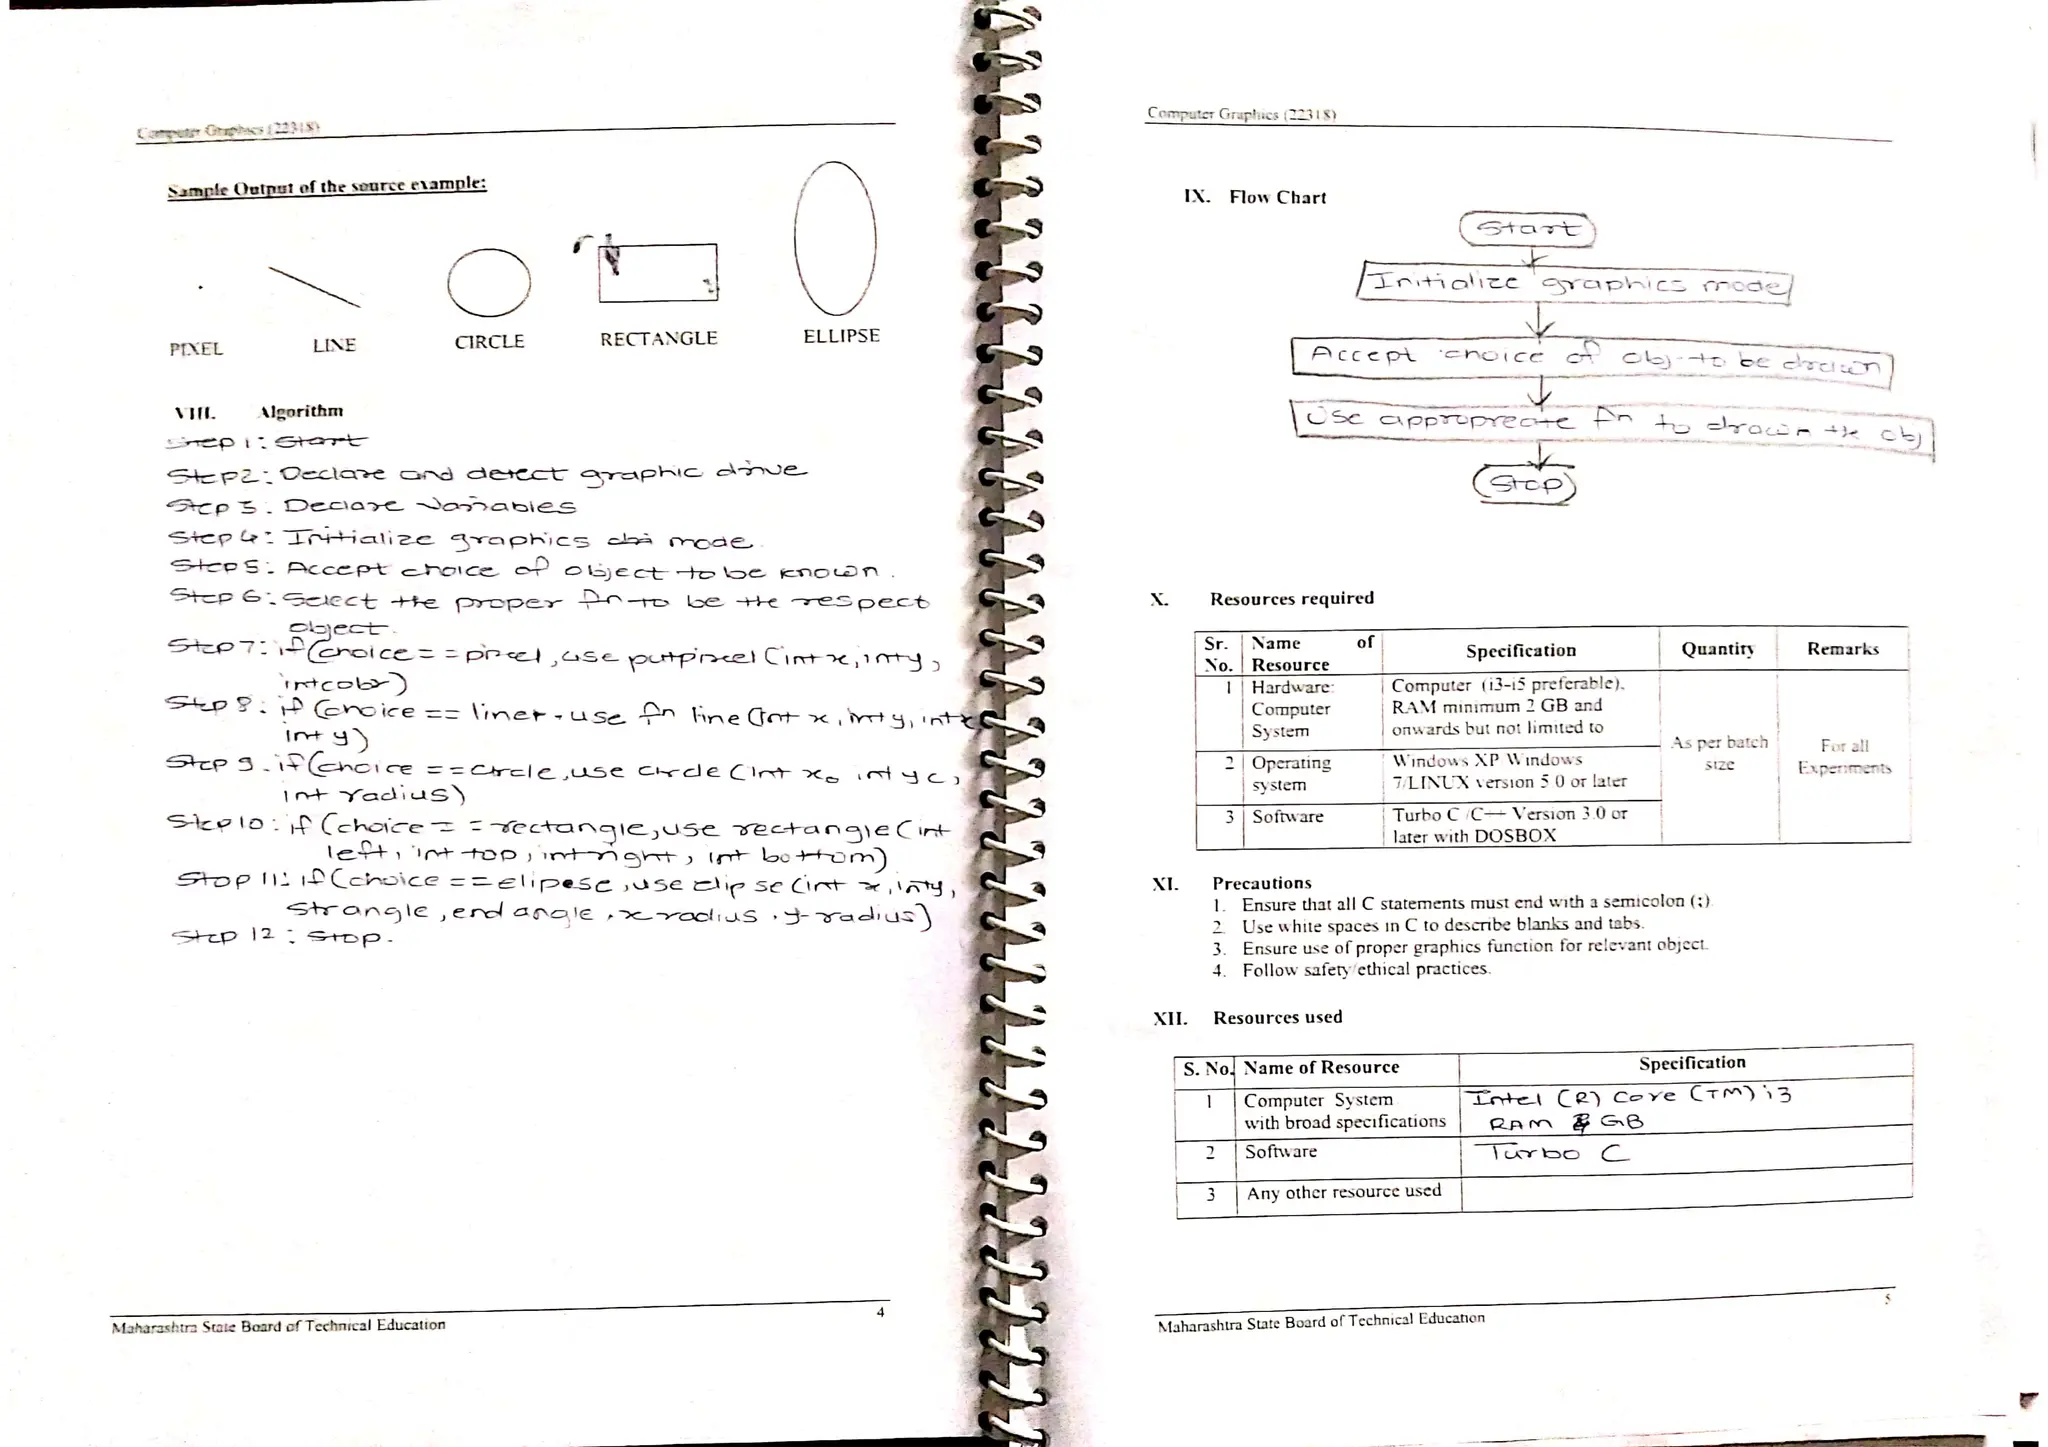 Computer Graphics (22318)
Sample Output of the source example:
PIXEL LINE CIRCLE RECTANGLE ELLIPSE
VIII. Algorithm
Step 1 : Start
Step2 : Declare and detect graphic drive
Step 3 . Declare variables
Step 4 : Initialize graphics mode.
Step 5 : Accept choice of object to be known .
Step 6 : Select the proper fn to be the respect
object.
Step 7 : if (choice = = pixel , use putpixel (int x, int y ,
int color)
Step 8 . if (choice == liner . use fn line (int x , int y, int x
int y)
Step 9 . if (choice == circle , use circle (int xo , int yc ,
int radius)
Step 10 : if (choice = = rectangle, use rectangle (int
left , int top , int right , int bottom)
Stop 11: if (choice == elipese , use elipse (int x , inty ,
strangle , end angle , x-radius , y-radius)
Step 12 : Stop .
Maharashtra State Board of Technical Education
4
Computer Graphics (22318)
IX. Flow Chart
Start
Initialize graphics mode
Accept choice of obj. to be drawn
Use appropreate fn to drawn the obj
Stop
X. Resources required
Sr. No. Name of Resource Specification Quantity Remarks
1 Hardware: Computer System Computer (i3-i5 preferable), RAM minimum 2 GB and onwards but not limited to As per batch size For all Experiments
2 Operating system Windows XP Windows 7/LINUX version 5.0 or later
3 Software Turbo C /C++ Version 3.0 or later with DOSBOX
XI. Precautions
1. Ensure that all C statements must end with a semicolon (;).
2. Use white spaces in C to describe blanks and tabs.
3. Ensure use of proper graphics function for relevant object.
4. Follow safety/ethical practices.
XII. Resources used
S. No. Name of Resource Specification
1 Computer System with broad specifications Intel (R) Core (TM) i3 RAM GB
2 Software Turbo C
3 Any other resource used
5
Maharashtra State Board of Technical Education